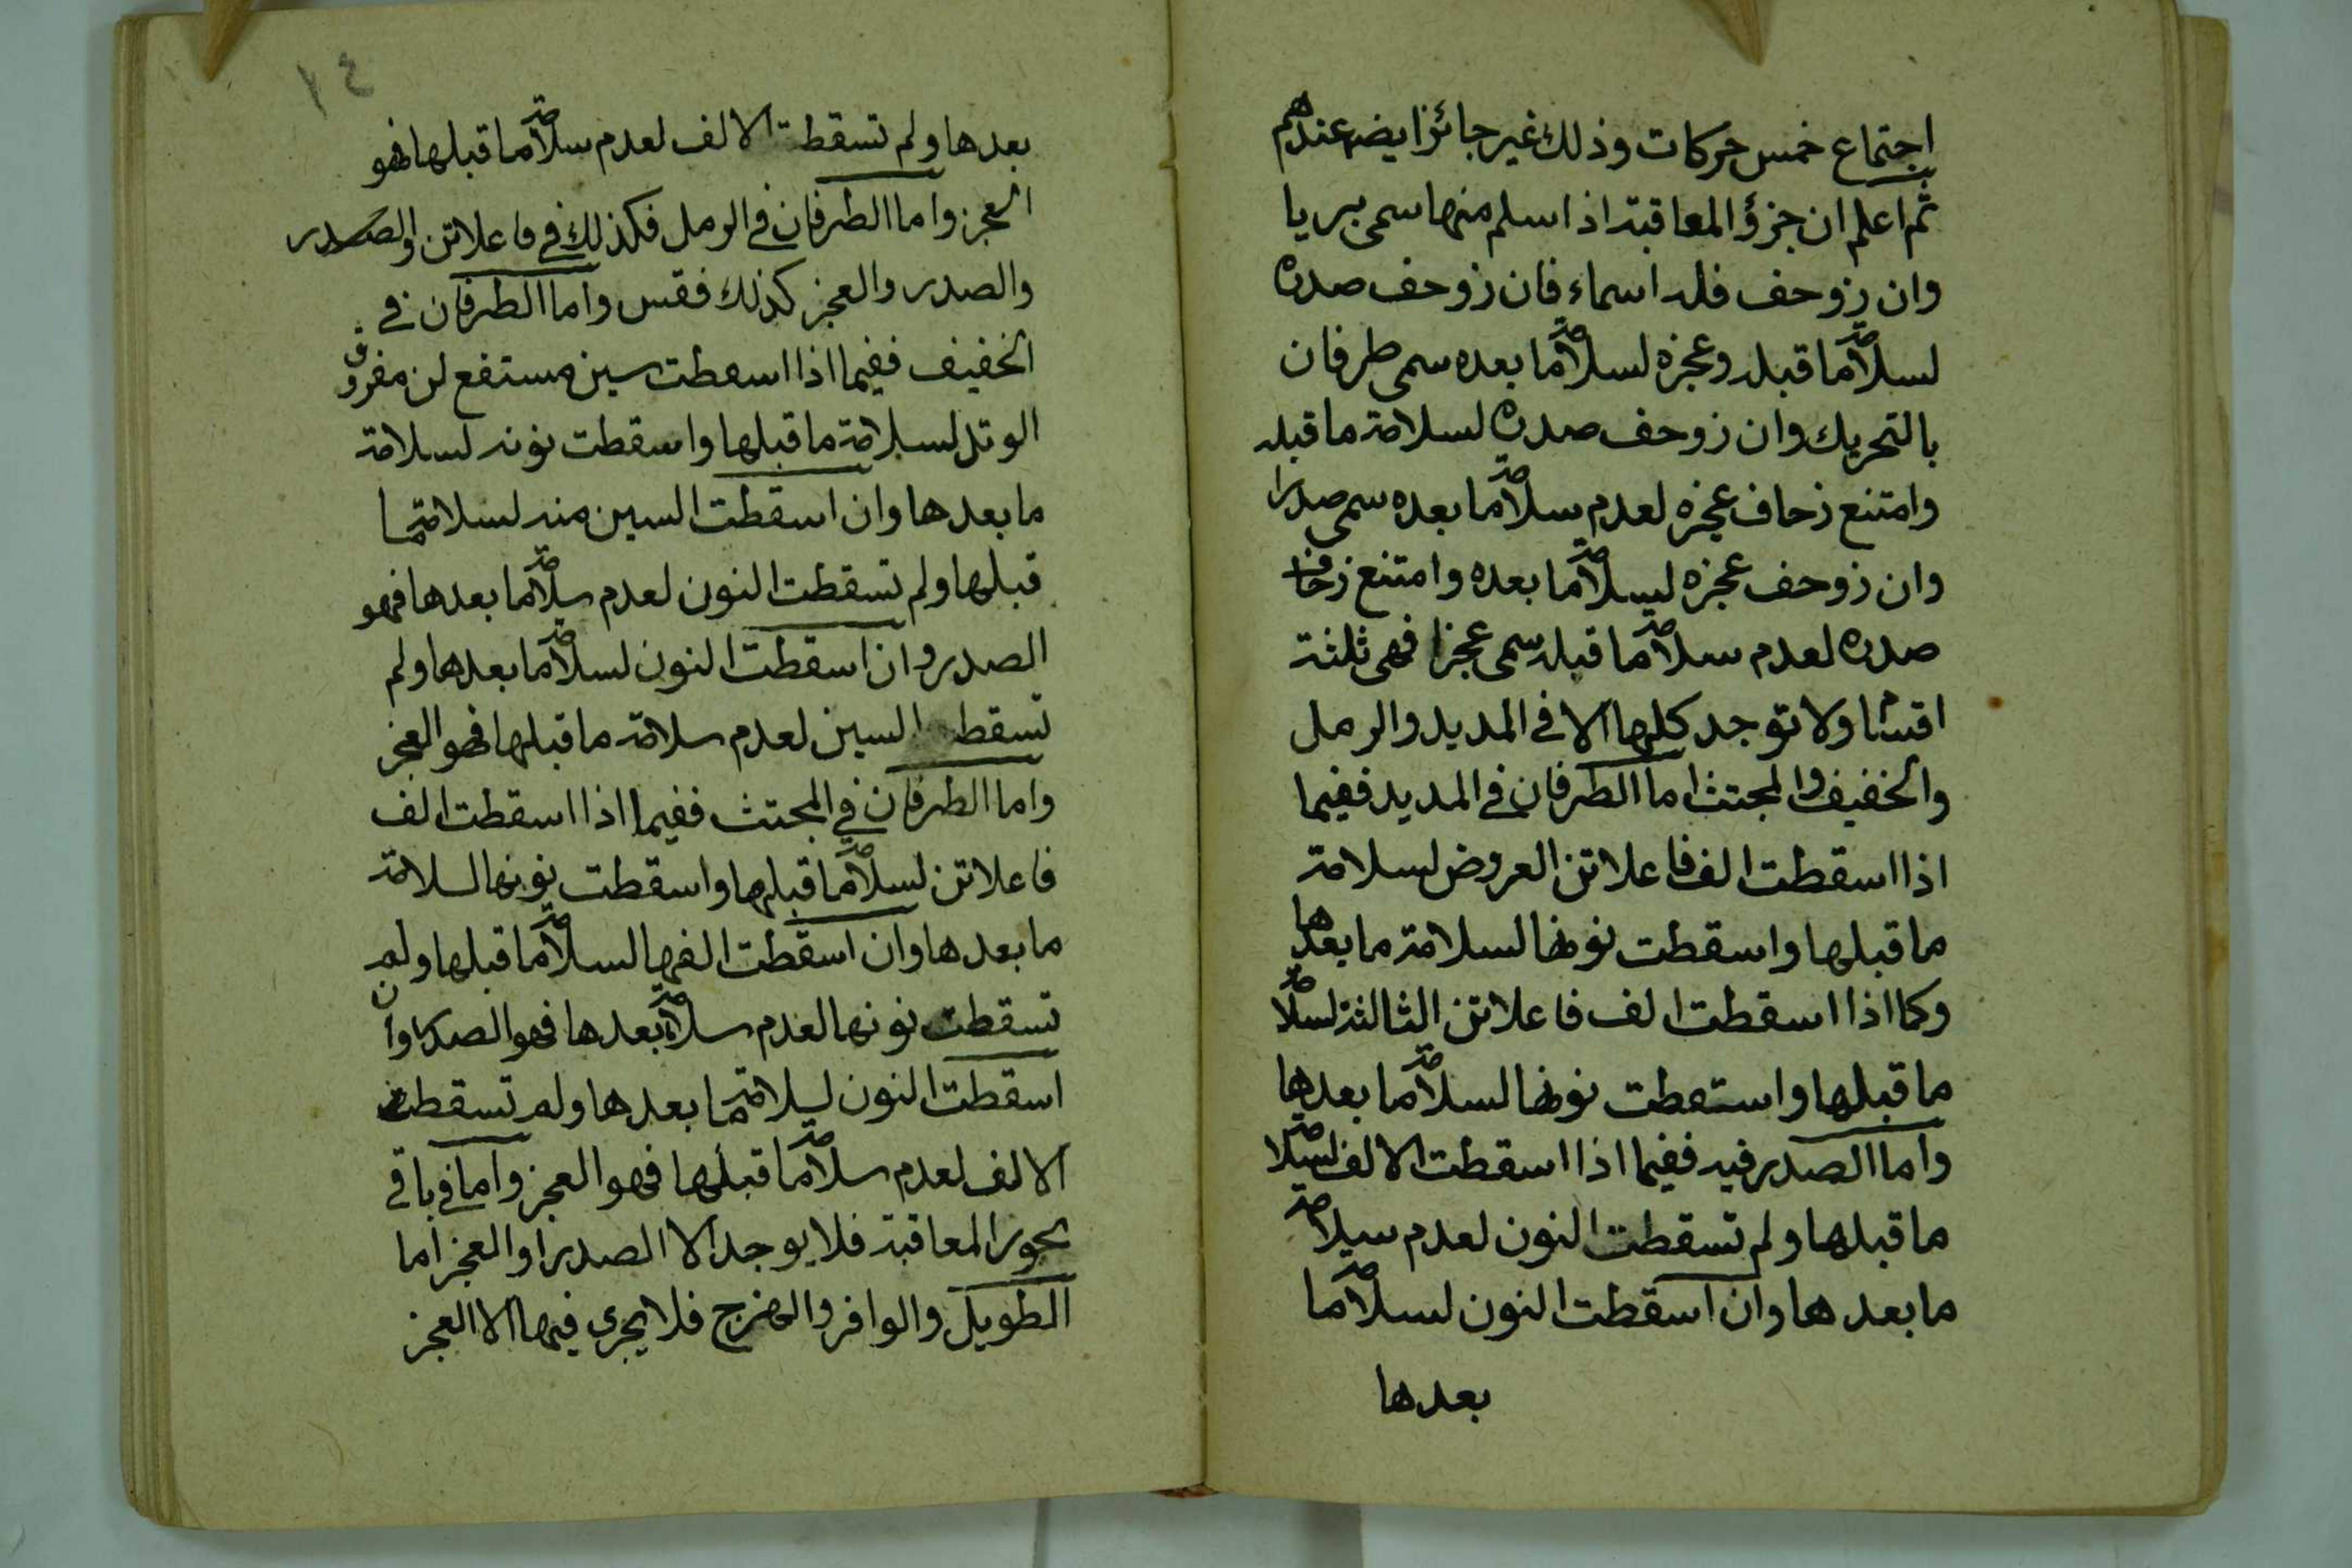 اجتماع خمس حركات وذلك غير جائز ايضا عندهم
ثم اعلم ان جزؤ المعاقبة اذا سلم منها سمى بريا
وان زوحف فله اسماء فان زوحف صدره
لسلامة ما قبله وعجزه لسلامة ما بعده سمى طرفان
بالتحريك وان زوحف صدره لسلامة ما قبله
وامتنع زحاف عجزه لعدم سلامة ما بعده سمى صدرا
وان زوحف عجزه لسلامة ما بعده وامتنع زحاف
صدره لعدم سلامة ما قبله سمى عجزا فهى ثلثة
اقسام ولا توجد كلها الا فى المديد والرمل
والخفيف والمجتث اما الطرفان فى المديد ففيما
اذا اسقطت الف فاعلاتن العروض لسلامة
ما قبلها واسقطت نونها لسلامة ما بعدها
وكما اذا اسقطت الف فاعلاتن الثالثة لسلامة
ما قبلها واسقطت نونها لسلامة ما بعدها
واما الصدر فيه ففيما اذا اسقطت الالف لسلامة
ما قبلها ولم تسقطت النون لعدم سلامة
ما بعدها وان اسقطت النون لسلامة ما
بعدها
١٤
بعدها ولم تسقطت الالف لعدم سلامة ما قبلها فهو
العجز واما الطرفان فى الرمل فكذلك فى فاعلاتن والصدر
والصدر والعجز كذلك فقس واما الطرفان فى
الخفيف ففيما اذا اسقطت سين مستفع لن مفروق
الوتد لسلامة ما قبلها واسقطت نونه لسلامة
ما بعدها وان اسقطت السين منه لسلامة ما
قبلها ولم تسقطت النون لعدم سلامة ما بعدها فهو
الصدر وان اسقطت النون لسلامة ما بعدها ولم
تسقط السين لعدم سلامة ما قبلها فهو العجز
واما الطرفان فى المجتث ففيما اذا اسقطت الف
فاعلاتن لسلامة ما قبلها واسقطت نونها لسلامة
ما بعدها وان اسقطت الفها لسلامة ما قبلها ولم
تسقطت نونها لعدم سلامة بعدها فهو الصدر وان
اسقطت النون لسلامة ما بعدها ولم تسقطت
الالف لعدم سلامة ما قبلها فهو العجز واما فى باقى
بحور المعاقبة فلا يوجد الا الصدر او العجز اما
الطويل والوافر والهزج فلا يجرى فيها الا العجز